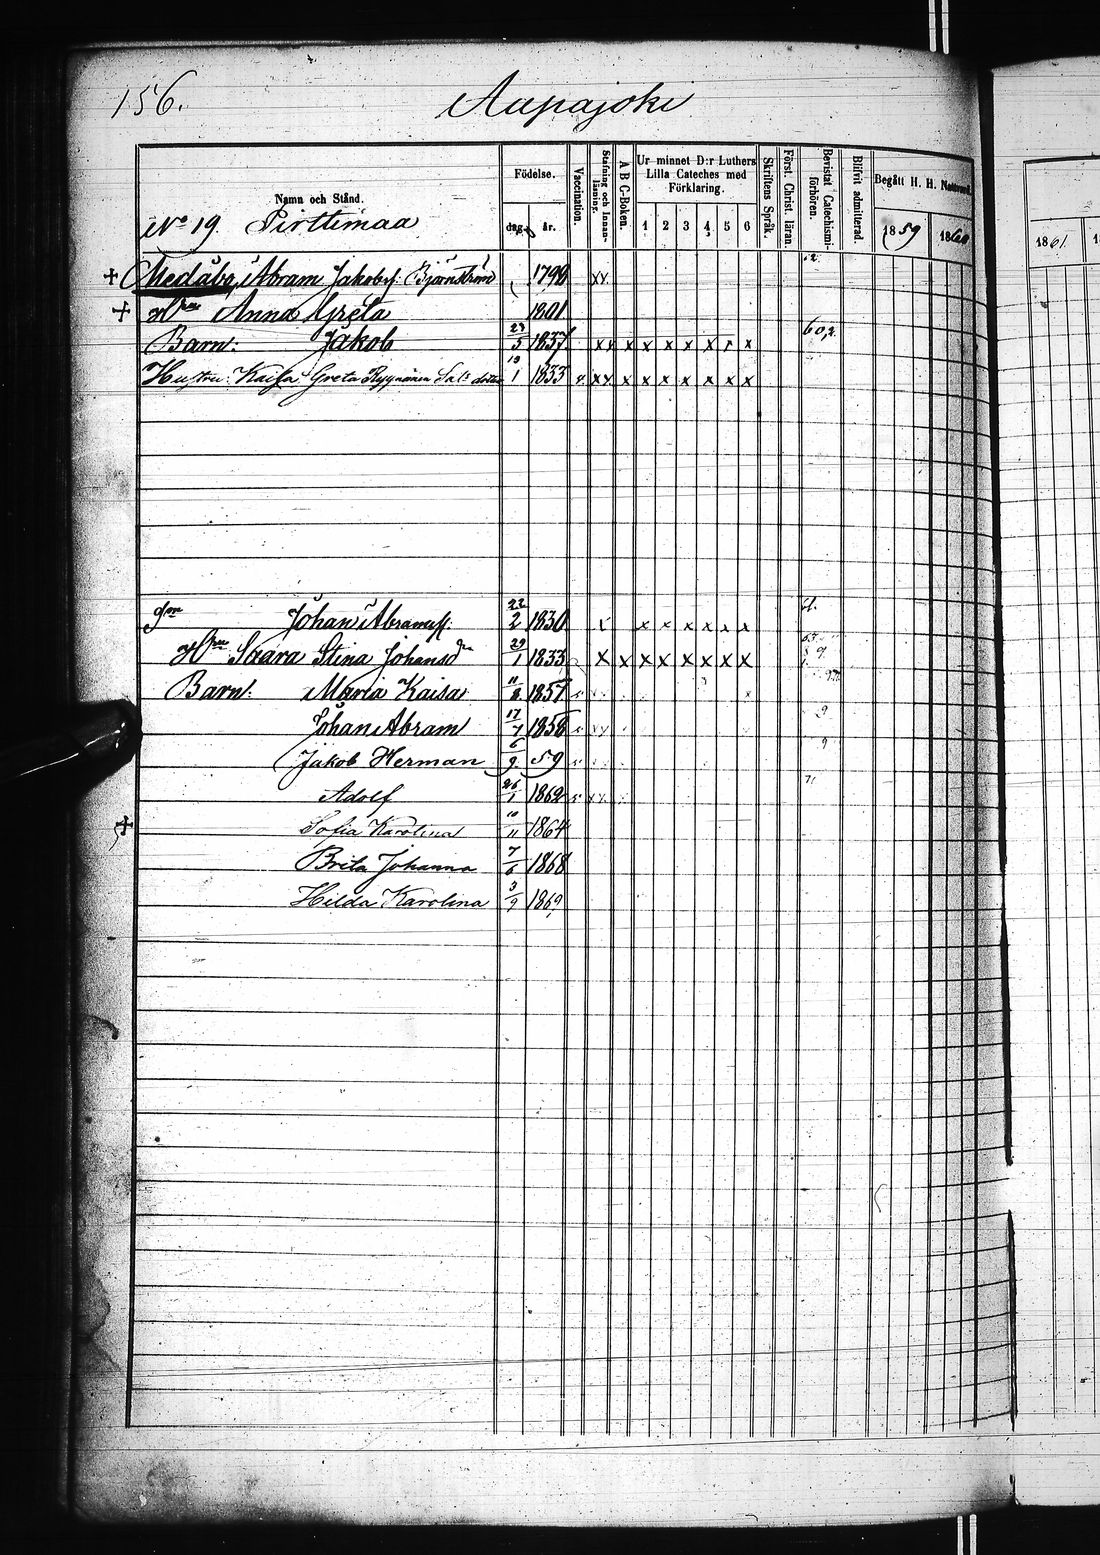 156.
Aapajoki
Namn och Stånd.
Födelse.
dag.
år.
Vaccination.
Stafning och Innanläsning.
A B C-Boken.
Ur minnet D:r Luthers Lilla Cateches med Förklaring.
1 2 3 4 5 6
Skriftens Språk.
Först. Christ. läran.
Bevistat Catechismi-förhören.
Blifvit admitterad.
Begått H. H. Nattvard.
1859 1860
1861
No 19. Pirttimaa
+ Medåbo, Abram Jakobss. Björnström 1798 xx
+ Hru Anna Greta 1801
Barn: Jakob 23/5 1837 xx x x x x x x x 60,2
Hustru: Kaisa Greta Ryynänen Sal. dotter 19/1 1833 xx x x x x x x x
Johan Abramss. 22/2 1830 x x x x x x
Hru Saara Stina Johansdr 29/1 1833 x x x x x x x x
Barn: Maria Kaisa 11/8 1857
Johan Abram 17/7 1858
Jakob Herman 6/9 59
Adolf 26/1 1862
+ Sofia Karolina 10/11 1864
Brita Johanna 7/6 1868
Hilda Karolina 3/9 1869